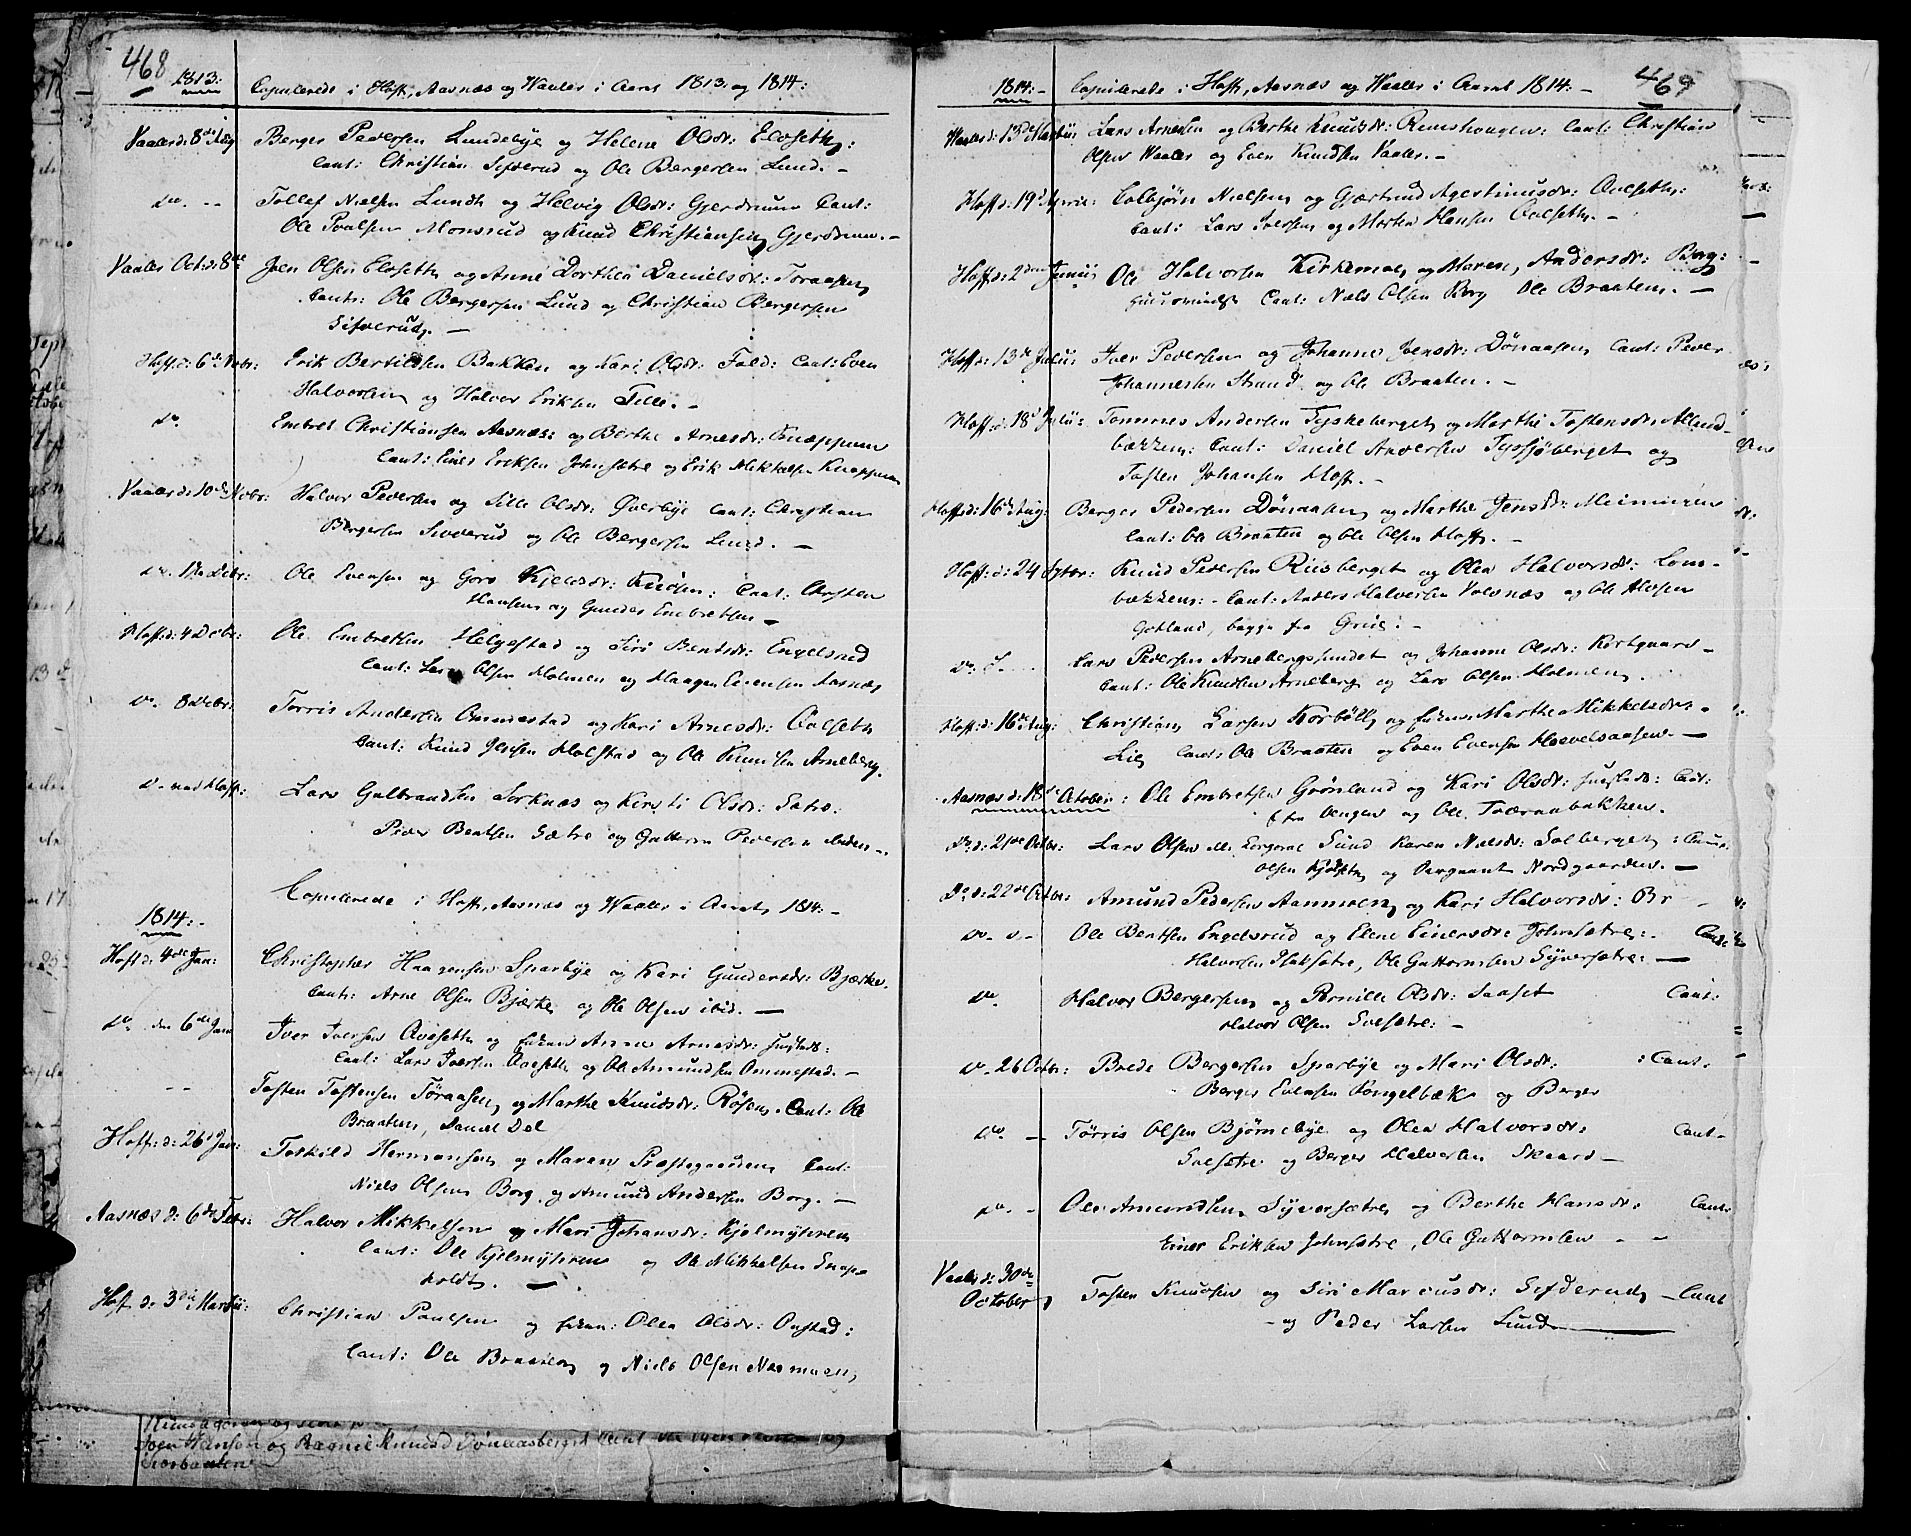 468
1813:
Copulerede i Hoff, Aasnæs og Vaaler i Aaret 1813 og 1814:
Vaaler d: 8de Aug
Berger Pedersen Lundebye og Helene Olsdr: Elvseth:
Caut: Christian Sifverud og Ole Bergersen Lund. -
do. --
Tollef Nielsen Lundh og Helvig Olsdr: Gjerdrum Caut:
Ole Poulsen Monsrud og Knud Christiansen Gjerdrum. -
Vaaler Oct: d: 8de
Joen Olsen Elvseth og Anne Dorthea Danielsdr: Toraasen
Caut: Ole Bergersen Lund og Christian Bergersen
Sifverud. -
Hoff: d: 6de Nobr:
Erik Bertildsen Bakken og Kari Olsdr: Fald: Caut: Even
Halvorsen og Halvor Eriksen Tille. -
do.
Embret Christiansen Aasnæs: og Berthe Arnesdr: Knappum
Caut: Einer Eriksen Johnsætre og Erik Mikkelsen Knappum
Vaaler d: 10de Nobr:
Halvor Pedersen og Sille Olsdr: Øverbye Caut: Christian
Bergersen Sivverud og Ole Bergersen Lund. -
do. 17de Debr:
Ole Evensen og Goro Kjeldsdr: Caut: Christen
Hansen og Gunder Embretsen -
Hoff: d: 4de Debr:
Ole Embretsen Helgestad og Siri Bentsdr: Engelsrud
Caut: Lars Olsen Holmen og Haagen Evensen Aasnæs
do. 8de Debr:
Torris Andersen Ommestad og Kari Arnesdr: Ovlseth
Caut: Knud Jensen Holstad og Ole Knudsen Arneberg.
d. ved Hoff:
Lars Gulbrandsen Sorknæs og Kersti Olsdr: Satre:
Peder Bentsen Sætre og Guttorm Pedersen ibidem -
Copulerede i Hoff, Aasnæs og Vaaler i Aaret 1814: -
1814: -
Hoff d: 4de Jan:
Christopher Haagensen Sparbye og Kari Gundersdr: Bjærke
Caut: Arne Olsen Bjærke og Ole Olsen ibid. -
do. den 6de Jan
Iver Iversen Ovlseth og Enken Anne Arnesdr:
Caut: Lars Iversen Ovlseth og Ole Amundsen Ommestad. -
--
Tosten Tostensen Toraasen og Marthe Knudsdr: Røsen. Caut: Ole
Braaten, Daniel Dal
Hoff: d: 26d Jan:
Toskild Hermansen og Maren Præstegaarden Caut:
Niels Olsen Borg, og Amund Andersen Borg. -
Aasnæs d: 6de Febr:
Halvor Mikkelsen og Mari Johansdr: Kjølmyhren
Caut: Ole Kjølmyhren og Ole Mikkelsen Snap-
holdt. -
Hoff d: 3de Martii:
Christian Paulsen og Enken: Olea Olsdr: Onstad:
Caut: Ole Braaten og Niels Olsen Nærmoen
Joen Hansen og Ragnil Knusd Dønaasberget
469
1814: -
Copulerede i Hoff, Aasnæs og Vaaler i Aaret 1814: -
Vaaler d: 13de Martii
Lars Arnesen og Berthe Knudsdr: Remshougen: Caut: Christian
Olsen Vaaler og Even Knudsen Vaaler. -
Hoff d: 19d Aprill:
Colbjörn Nielsen og Gjærtrud Agestinusdr: Ovlseth:
Caut: Lars Iversen og Morten Hansen Ovlseth. -
Hoff: d: 2den Junii
Ole Halvorsen Kirkemoe, og Maren Andersdr: Borg:
Caut: Niels Olsen Borg Ole Braaten. -
Hoff: d: 13de Julii:
Iver Pedersen og Johanne Joensdr: Dønaasen Caut: Peder
Johannesen Strand og Ole Braaten. -
Hoff: d: 18d Julii:
Tommes Andersen Tyskeberget og Marthe Tostensdr: Alland-
bækken: Caut: Daniel Andersen Tyssjöberget og
Tosten Johansen Hoff. -
Hoff: d: 16de Aug:
Berger Pedersen Dønaasen og Marthe Jensdr:
Caut: Ole Braaten og Ole Olsen Hoff. -
Hoff: d: 24 Sptbr:
Knud Pedersen Riisberget og Olea Halvorsdr: Lom-
bækken: - Caut: Anders Halvorsen Volvnæs og Ole Olsen
Gotland, begge fra Grue: -
do. d. ...
Lars Pedersen Arnebergsundet og Johanne Olsdr: Kortgaard -
Caut: Ole Knudsen Arneberg og Lars Olsen Holmen.
Hoff: d: 16de Aug:
Christian Larsen Korböll og Enken Marthe Mikkelsdr: -
Lie Caut: Ole Braaten og Even Evensen Hoevelsaasen. -
Aasnæs d: 18de October:
Ole Embretsen Grønland og Kari Olsdr: Caut:
og Ole Tværaabakken.
Do. d: 21de Octbr:
Lars Olsen Sund Karen Nielsdr: Solberget :
Olsen og Nordgaarden. -
Do d: 22de Octbr:
Amund Pedersen Aamoen og Kari Halvorsdr: Br -
do. d. -
Ole Bentsen Engelsrud og Elene Einersdr: Johnsætre: Caut:
Halvorsen Flaksætre, Ole Guttormsen Syversætre: -
do.
Halvor Bergersen og Pernille Olsdr: Saaset Caut:
Halvor Olsen Svesætre: -
do. 26 Octbr:
Brede Bergersen Sparbye og Mari Olsdr: : Caut:
Berger Evensen Kongelbæk og Berger
do. -
Törris Olsen Bjørnebye og Olea Halvorsdr: Caut -
Svesætre og Berger Halvorsen Skaard -
do. -
Ole Amundsen Syversætre og Berthe Hansdr: Caut:
Einer Eriksen Johnsætre, Ole Guttormsen - -
Vaaler d: 30de
October
Tosten Knudsen og Siri Marcusdr: Sifderud - Caut
- og Peder Larsen Lund